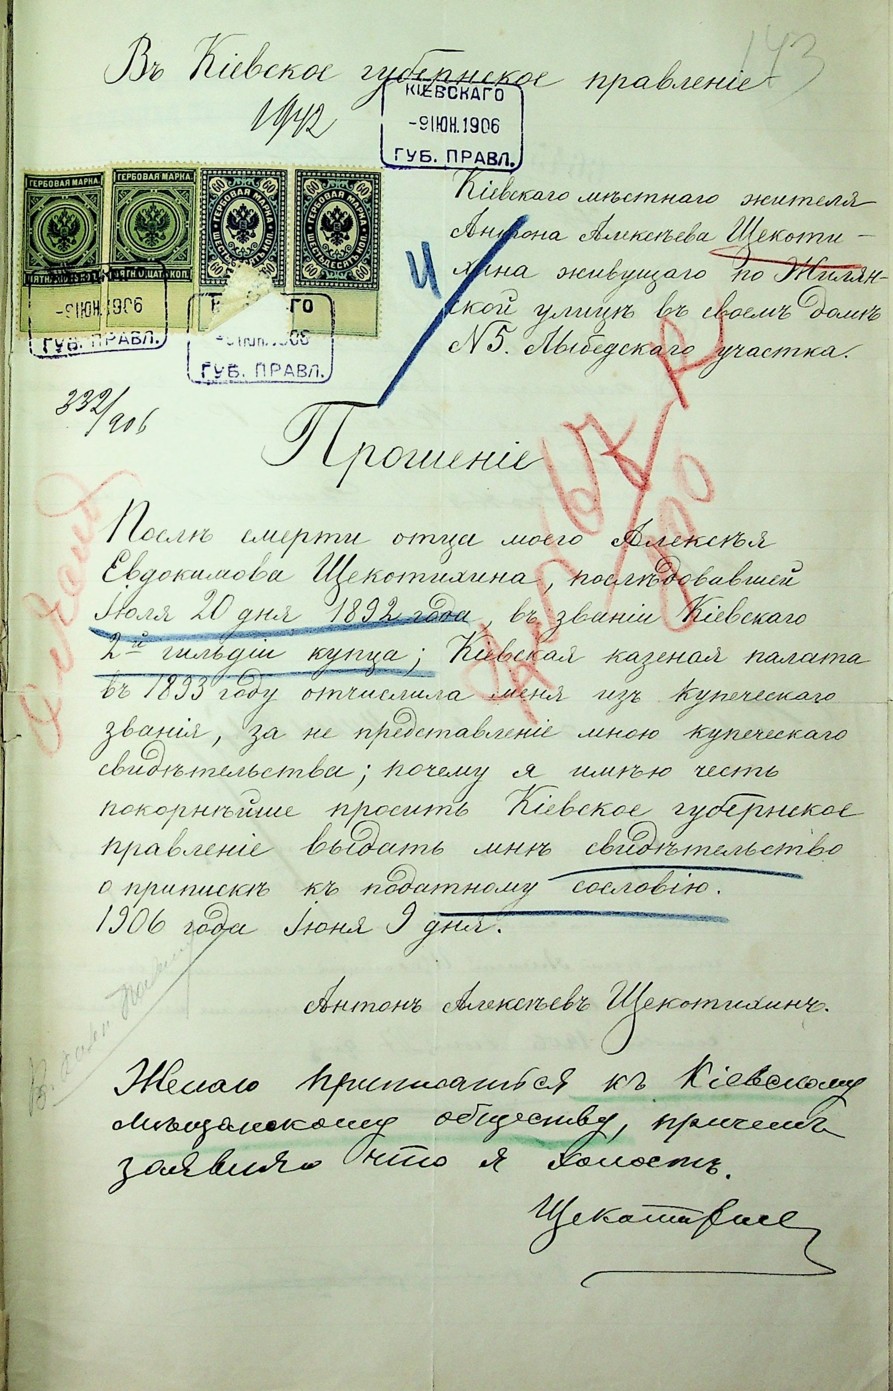 143
Въ Кіевское губернское правленіе
1942
КІЕВСКАГО
-9 ІЮН.1906
ГУБ. ПРАВЛ.
ГЕРБОВАЯ МАРКА
ГЕРБОВАЯ МАРКА
ГЕРБОВАЯ МАРКА
60
ГЕРБОВАЯ МАРКА
60
-9 ІЮН.1906
ГУБ. ПРАВЛ.
ГУБ. ПРАВЛ.
Кіевскаго мѣстнаго жителя
Антона Алексѣева Щекоти-
хина живущаго по Жилян-
ской улицѣ въ своемъ домѣ
N 5. Лыбедскаго участка.
332/906
Прошеніе
Послѣ смерти отца моего Алексѣя
Евдокимова Щекотихина, послѣдовавшей
Іюля 20 дня 1892 года, въ званіи Кіевскаго
2й гильдіи купца; Кіевская казеная палата
въ 1893 году отчислила меня изъ купеческаго
званія, за не представленіе мною купеческаго
свидѣтельства; почему я имѣю честь
покорнѣйше просить Кіевское губернское
правленіе выдать мнѣ свидѣтельство
о припискѣ къ податному сословію.
1906 года Іюня 9 дня.
Антонъ Алексѣевъ Щекотихинъ.
Желаю приписаться къ Кіевскому
мѣщанскому обществу, причемъ
заявляю что я холостъ.
Щекотихин